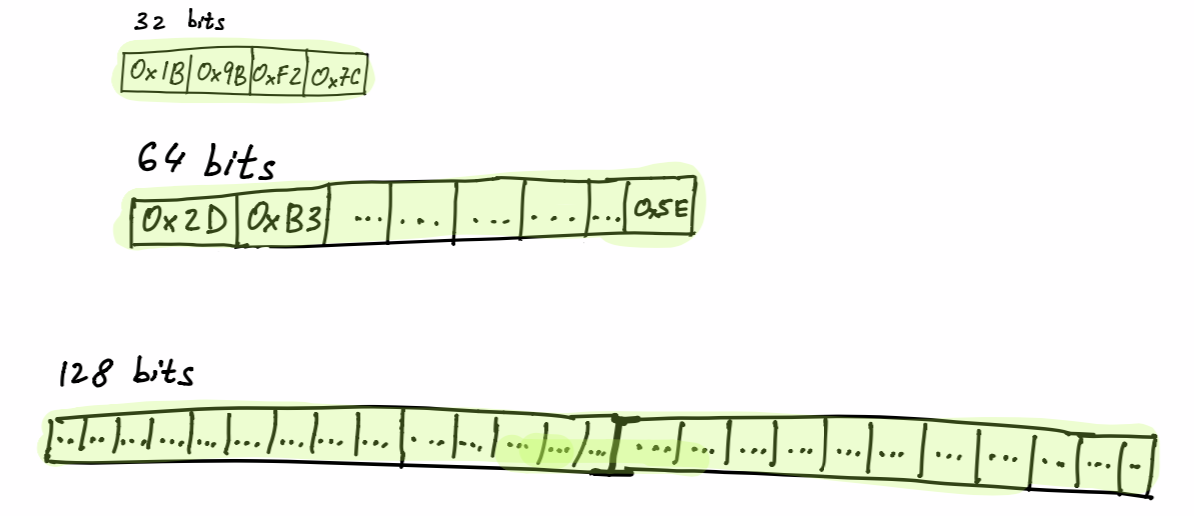 32 bits
0x1B 0x9B 0xF2 0x7C
64 bits
0x2D 0xB3 ... ... ... ... ... 0x5E
128 bits
.. .. ... ... ... ... ... ... ... ... ... ... ... ... ... ... ... ... ... ... ... ... .. ... ..